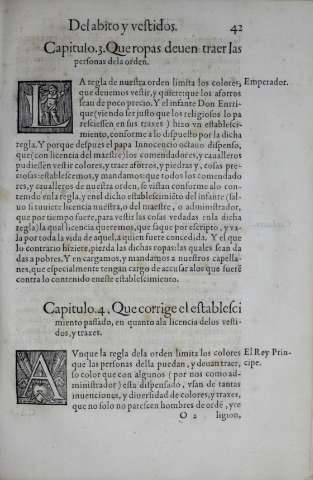 Del abito y vestidos. 42
Capitulo.3. Que ropas deuen traer las
personas dela orden.
LA regla de nuestra orden limita los colores, Emperador.
que deuemos vestir, y quiere: que los aforros
sean de poco precio. Y el infante Don Enrri-
que (viendo ser justo que los religiosos lo pa
resciessen en sus traxes) hizo vn establesci-
miento, conforme a lo dispuesto por la dicha
regla. Y porque despues el papa Innocencio octauo dispenso,
que (con licencia del maestre) los comendadores, y caualleros
pudiessen vestir colores, y traer aforros, y piedras y, cosas pre-
ciosas: establescemos, y mandamos: que todos los comendado
res, y caualleros de nuestra orden, se vistan conforme alo con-
tenido enla regla, y enel dicho establescimiẽto del infante (sal-
uo si tuuiere licencia nuestra, o del maestre, o administrador,
que por tiempo fuere, para vestir las cosas vedadas enla dicha
regla) la qual licencia queremos, que saque por escripto, y va-
la por toda la vida de aquel, a quien fuere concedida. Y el que
lo contrario hiziere, pierda las dichas ropas: las quales sean da
das a pobres. Y en cargamos, y mandamos a nuestros capella-
nes, que especialmente tengan cargo de accusar alos que fuerẽ
contra lo contenido eneste establescimiento.
Capitulo.4. Que corrige el establesci
miento passado, en quanto ala licencia delos vesti-
dos, y traxes.
AVnque la regla dela orden limita los colores El Rey Prin-
que las personas della puedan, y deuan traer, cipe.
so color que con algunos (por nos como ad-
ministrador) esta dispensado, vsan de tantas
inuenciones, y diuersidad de colores, y traxes,
que no solo no parescen hombres de ordẽ, y re
O 2 ligion,